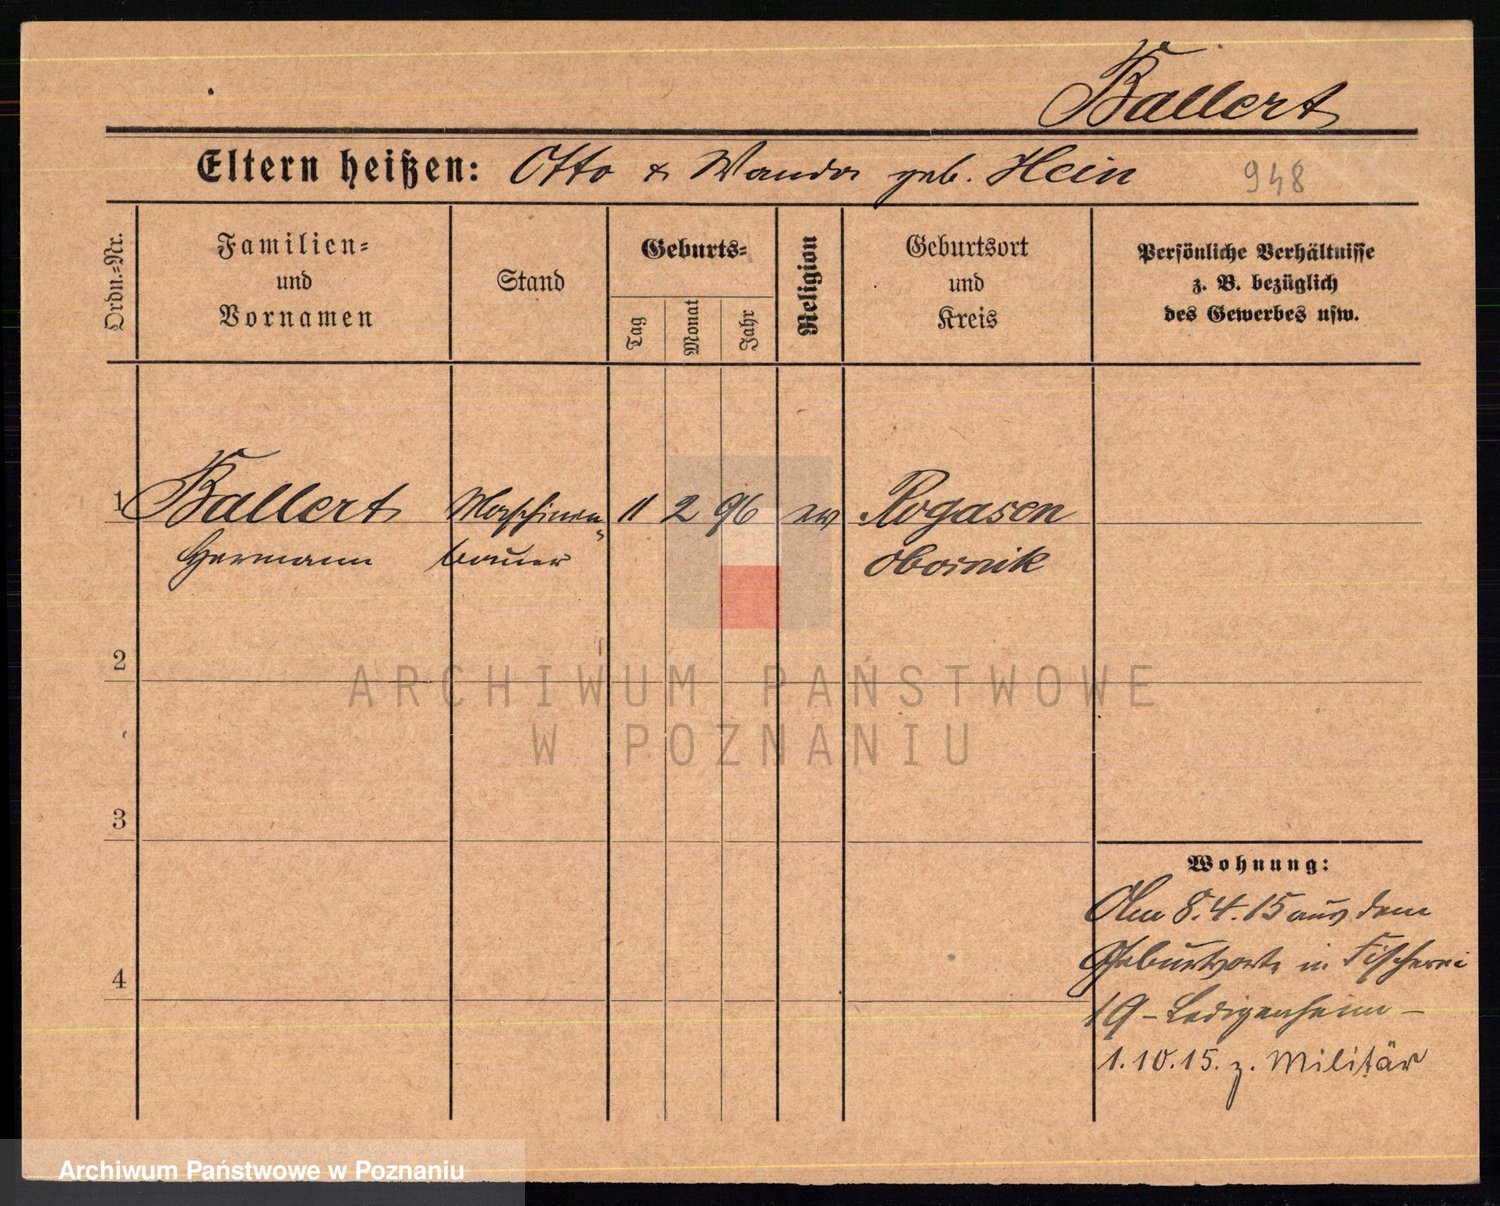 Ballert
Eltern heißen: Otto & Wanda geb. Hein 948
Ordn.-Nr.
Familien-
und
Vornamen
Stand
Geburts-
Tag
Monat
Jahr
Religion
Geburtsort
und
Kreis
Persönliche Verhältnisse
z. B. bezüglich
des Gewerbes usw.
1 Ballert Maschinen- 11 2 96 ev Rogasen
Hermann bauer Obornik
2
3
4
Wohnung:
Am 8.4.15 aus dem
Geburtsorte in Fischerei
19 - Ledigenheim -
1.10.15. z. Militär
ARCHIWUM PAŃSTWOWE
W POZNANIU
Archiwum Państwowe w Poznaniu